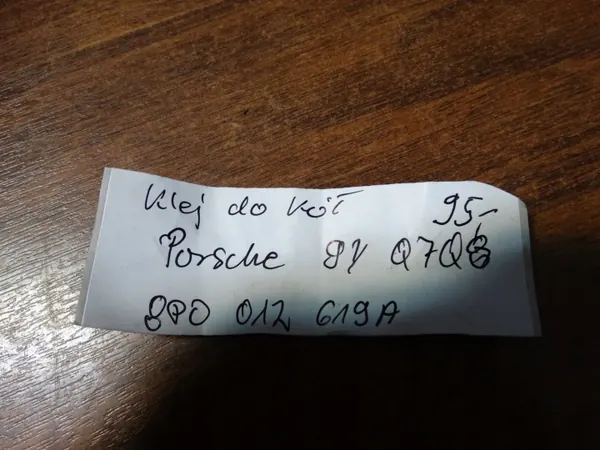 Klej do kół 95,-
Porsche 9Y Q7Q8
8P0 012 619A